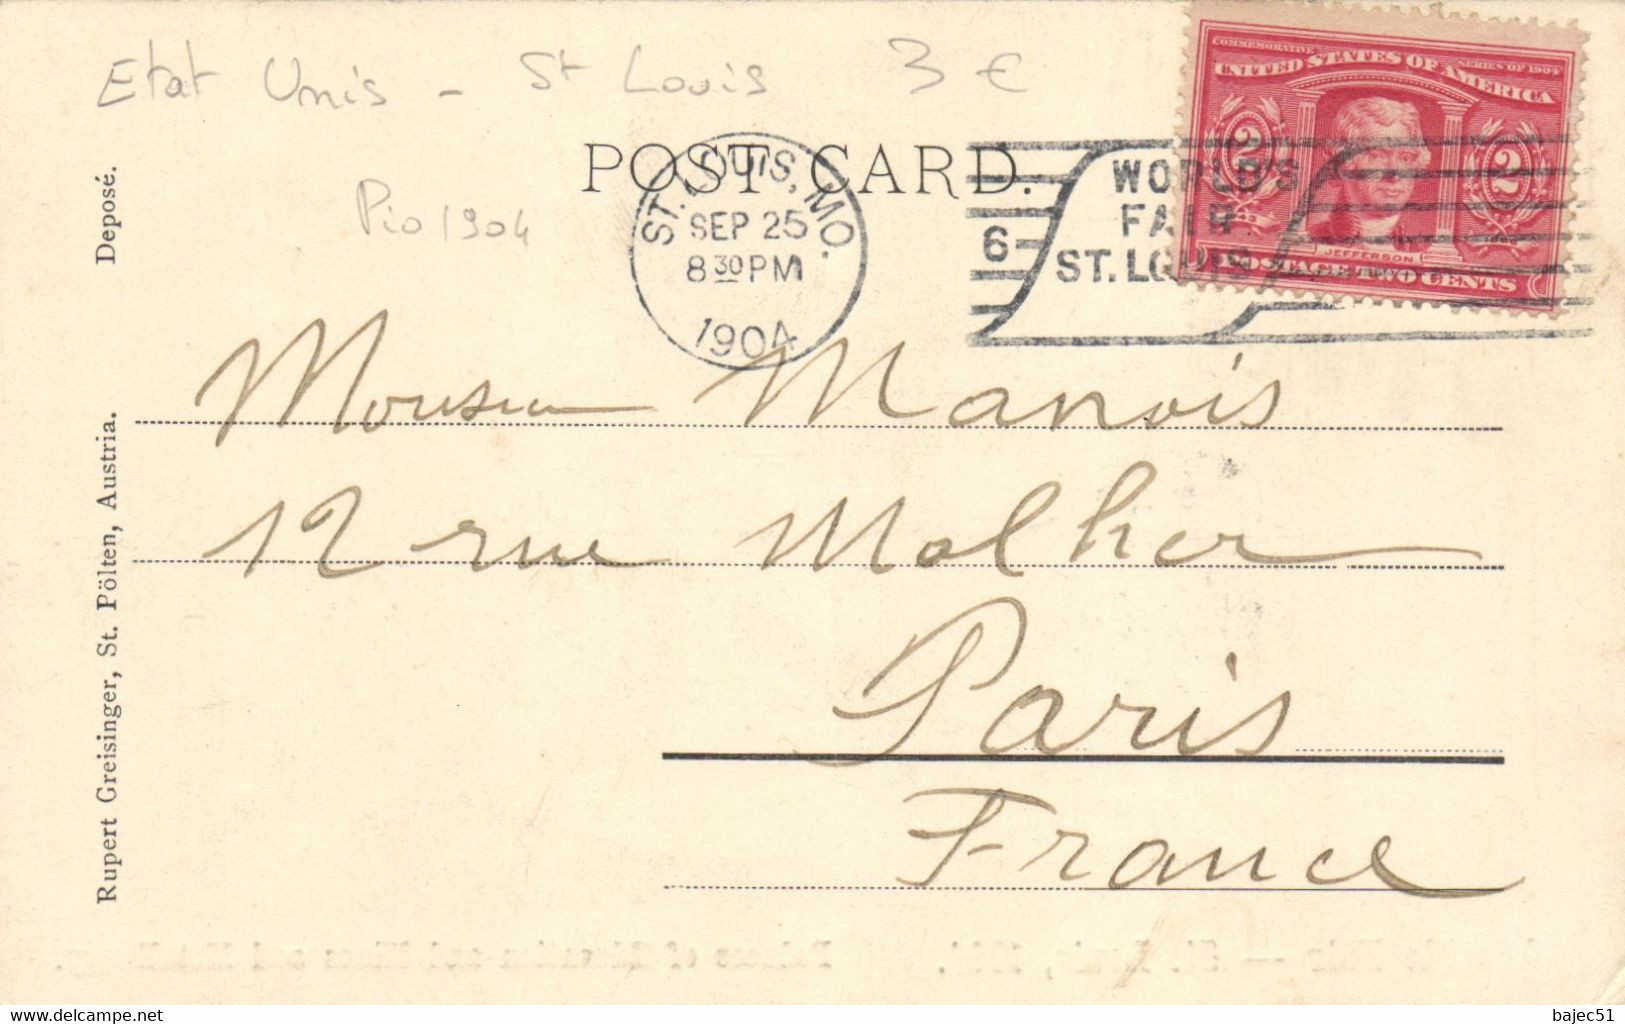 Etat Unis - St Louis 3 €
COMMEMORATIVE SERIES OF 1904
UNITED STATES OF AMERICA
2 2
JEFFERSON
POSTAGE TWO CENTS
POST CARD.
ST. LOUIS, MO.
SEP 25
8 30 PM
1904
6
WORLD'S
FAIR.
ST. LOUIS
Pio 1904
Déposé.
Rupert Greisinger, St. Pölten, Austria.
Monsieur Manois
12 rue Molher
Paris
France
delcampe.net
bajec51